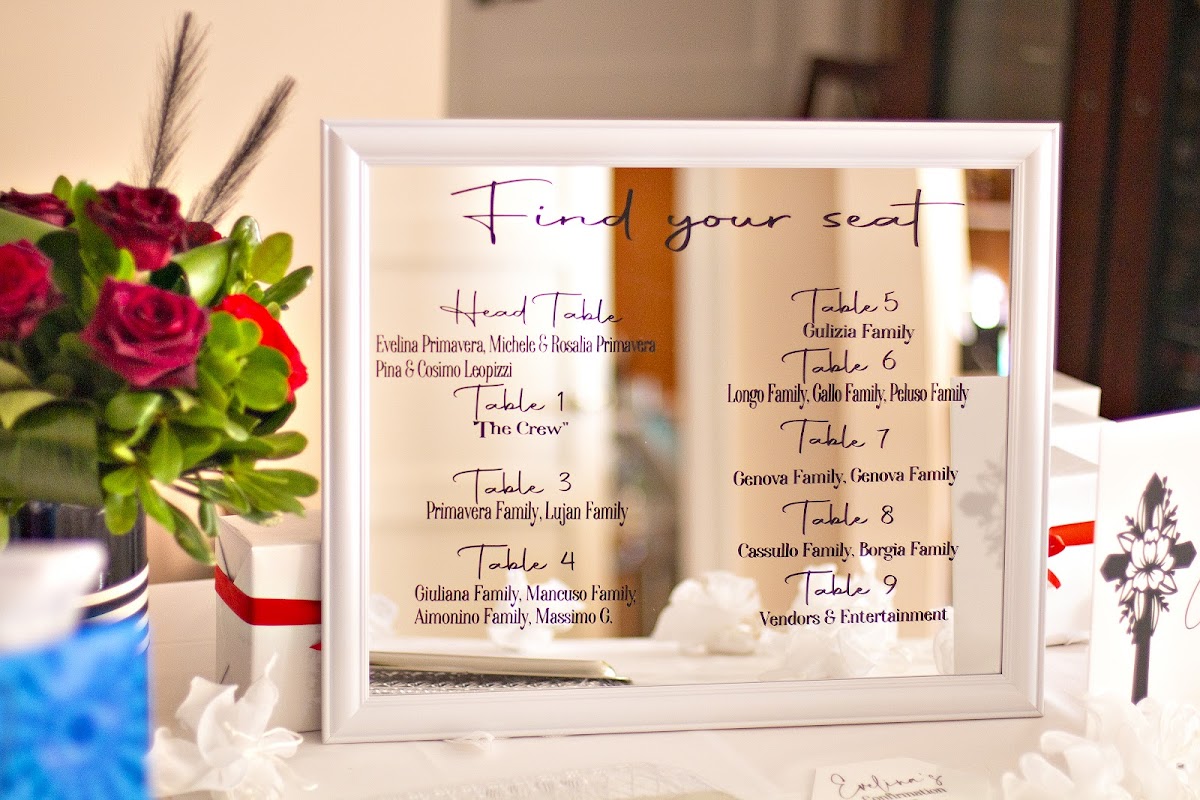 Find your seat
Head Table
Evelina Primavera, Michele & Rosalia Primavera
Pina & Cosimo Leopizzi
Table 1
"The Crew"
Table 3
Primavera Family, Lujan Family
Table 4
Giuliana Family, Mancuso Family,
Aimonino Family, Massimo G.
Table 5
Gulizia Family
Table 6
Longo Family, Gallo Family, Peluso Family
Table 7
Genova Family, Genova Family
Table 8
Cassullo Family, Borgia Family
Table 9
Vendors & Entertainment
Evelina's
Confirmation